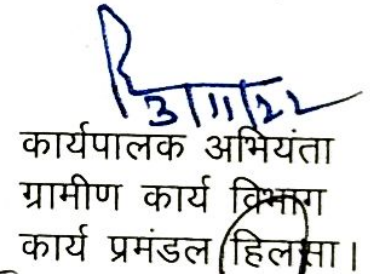 3/11/22
कार्यपालक अभियंता
ग्रामीण कार्य विभाग
कार्य प्रमंडल हिलसा।